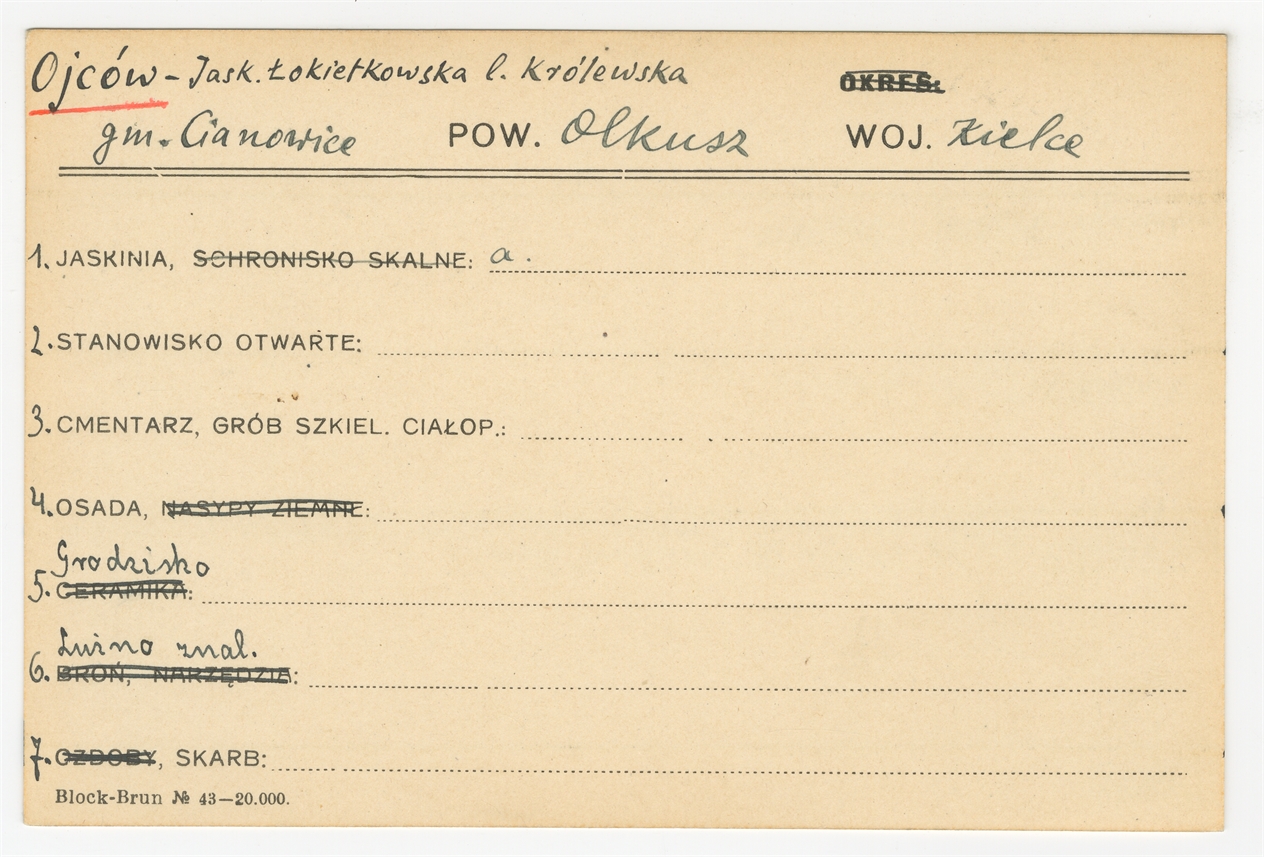 Ojców - Jask. Łokietkowska l. Królewska OKRES:
gm. Cianowice POW. Olkusz WOJ. Kielce
1. JASKINIA, SCHRONISKO SKALNE: a.
2. STANOWISKO OTWARTE:
3. CMENTARZ, GRÓB SZKIEL. CIAŁOP.:
4. OSADA, NASYPY ZIEMNE:
Grodzisko
5. CERAMIKA:
Luźno znal.
6. BROŃ, NARZĘDZIA:
7. OZDOBY, SKARB:
Block-Brun № 43—20.000.